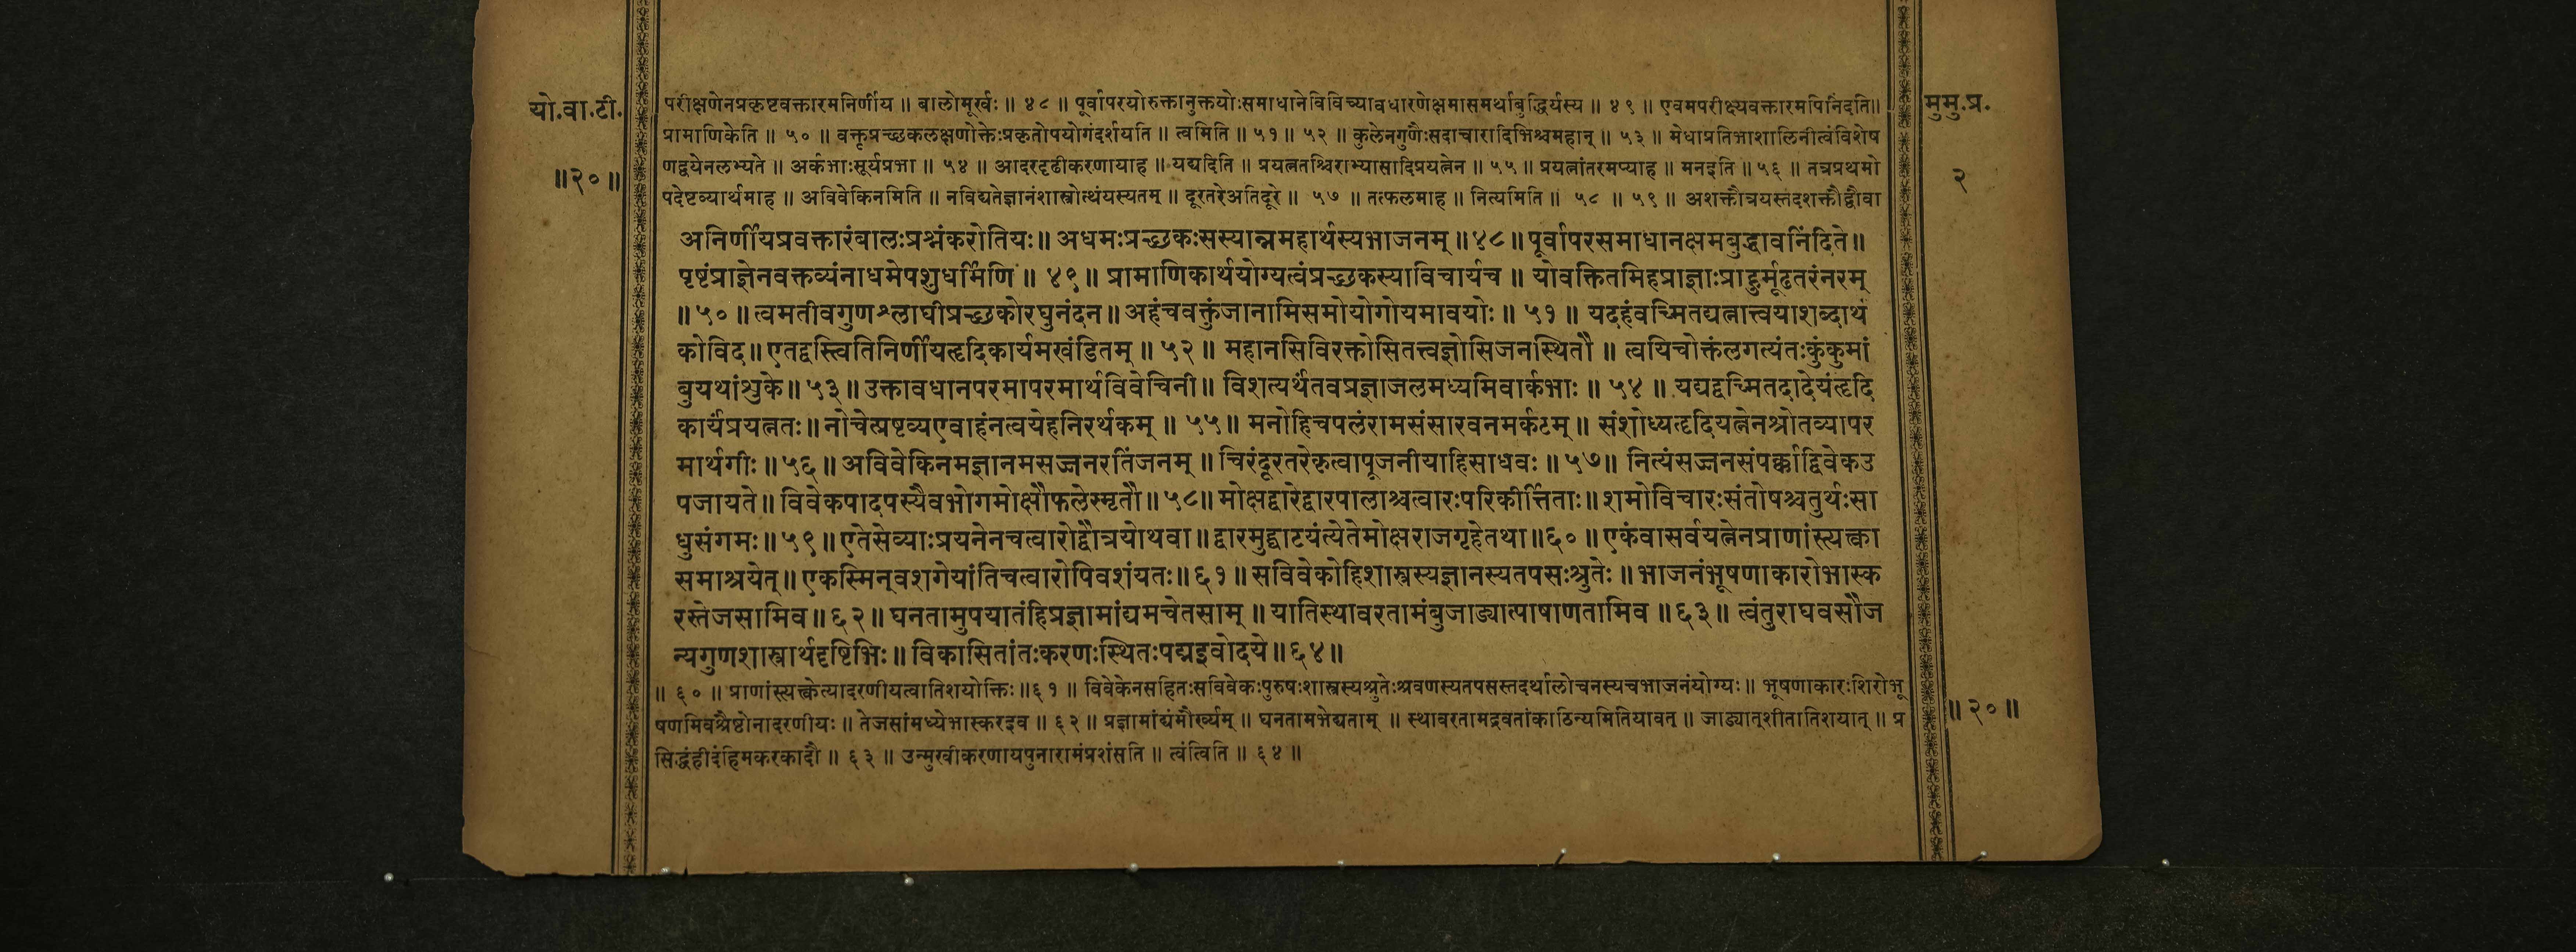 यो.वा.टी.
॥२०॥
मुमु.प्र.
२
परीक्षणेनप्रकृष्टवक्तारमनिर्णीय ॥ बालोमूर्खः ॥ ४८ ॥ पूर्वापरयोरुक्तानुक्तयोःसमाधानेविविच्यावधारणेक्षमासमर्थाबुद्धिर्यस्य ॥ ४९ ॥ एवमपरीक्ष्यवक्तारमपिनिंदति॥
प्रामाणिकेति ॥ ५० ॥ वक्तृप्रच्छकलक्षणोक्तेःप्रकृतोपयोगंदर्शयति ॥ त्वमिति ॥ ५१॥ ५२ ॥ कुलेनगुणैःसदाचारादिभिश्चमहान् ॥ ५३ ॥ मेधाप्रतिभाशालिनीत्वंविशेष
णद्वयेनलभ्यते ॥ अर्कभाःसूर्यप्रभा ॥ ५४ ॥ आदरदृढीकरणायाह ॥ यद्यदिति ॥ प्रयत्नतश्चिराभ्यासादिप्रयत्नेन ॥ ५५ ॥ प्रयत्नांतरमप्याह ॥ मनइति ॥ ५६ ॥ तत्रप्रथमो
पदेष्टव्यार्थमाह ॥ अविवेकिनमिति ॥ नविद्यतेज्ञानंशास्त्रोत्थंयस्यतम् ॥ दूरतरेअतिदूरे ॥ ५७ ॥ तत्फलमाह ॥ नित्यमिति ॥ ५८ ॥ ५९ ॥ अशक्तौत्रयस्तदशक्तौद्वौवा
अनिर्णीयप्रवक्तारंबालःप्रश्नंकरोतियः॥ अधमःप्रच्छकःसस्यान्नमहार्थस्यभाजनम् ॥४८॥ पूर्वापरसमाधानक्षमबुद्धावनिंदिते॥
पृष्टंप्राज्ञेनवक्तव्यंनाधमेपशुधर्मिणि ॥ ४९॥ प्रामाणिकार्थयोग्यत्वंप्रच्छकस्याविचार्यच ॥ योवक्तितमिहप्राज्ञाःप्राहुर्मूढतरंनरम्
॥५०॥ त्वमतीवगुणश्लाघीप्रच्छकोरघुनंदन॥ अहंचवक्तुंजानामिसमोयोगोयमावयोः॥ ५१॥ यदहंवच्मितद्यत्नात्त्वयाशब्दार्थ
कोविद॥ एतद्वस्त्वितिनिर्णीयहृदिकार्यमखंडितम् ॥ ५२॥ महानसिविरक्तोसितत्त्वज्ञोसिजनस्थितौ ॥ त्वयिचोक्तंलगत्यंतःकुंकुमां
बुयथांशुके॥ ५३॥ उक्तावधानपरमापरमार्थविवेचिनी॥ विशत्यर्थंतवप्रज्ञाजलमध्यमिवार्कभाः॥ ५४॥ यद्यद्वच्मितदादेयंहृदि
कार्यंप्रयत्नतः॥ नोचेत्प्रष्टव्यएवाहंनत्वयेहनिरर्थकम् ॥ ५५॥ मनोहिचपलंरामसंसारवनमर्कटम्॥ संशोध्यहृदियत्नेनश्रोतव्यापर
मार्थगीः॥५६॥ अविवेकिनमज्ञानमसज्जनरतिंजनम् ॥ चिरंदूरतरेकृत्वापूजनीयाहिसाधवः॥५७॥ नित्यंसज्जनसंपर्काद्विवेकउ
पजायते॥ विवेकपादपस्यैवभोगमोक्षौफलेस्मृतौ॥५८॥ मोक्षद्वारेद्वारपालाश्चत्वारःपरिकीर्त्तिताः॥ शमोविचारःसंतोषश्चतुर्थःसा
धुसंगमः॥५९॥ एतेसेव्याःप्रयत्नेनचत्वारोद्वौत्रयोथवा॥ द्वारमुद्घाटयंत्येतेमोक्षराजगृहेतथा॥६०॥ एकंवासर्वयत्नेनप्राणांस्त्यक्त्वा
समाश्रयेत्॥ एकस्मिन्वशगेयांतिचत्वारोपिवशंयतः॥६१॥ सविवेकोहिशास्त्रस्यज्ञानस्यतपसःश्रुतेः॥ भाजनंभूषणाकारोभास्क
रस्तेजसामिव॥६२॥ घनतामुपयातंहिप्रज्ञामांद्यमचेतसाम् ॥ यातिस्थावरतामंबुजाड्यात्पाषाणतामिव ॥६३॥ त्वंतुराघवसौज
न्यगुणशास्त्रार्थदृष्टिभिः॥ विकासितांतःकरणःस्थितःपद्मइवोदये॥६४॥
॥ ६० ॥ प्राणांस्त्यक्त्वेत्यादरणीयत्वातिशयोक्तिः ॥६१ ॥ विवेकेनसहितःसविवेकःपुरुषःशास्त्रस्यश्रुतेःश्रवणस्यतपसस्तदर्थालोचनस्यचभाजनंयोग्यः॥ भूषणाकारःशिरोभू
षणमिवश्रैष्ठ्येनादरणीयः ॥ तेजसांमध्येभास्करइव ॥ ६२॥ प्रज्ञामांद्यंमौर्ख्यम् ॥ घनतामभेद्यताम् ॥ स्थावरतामद्रवतांकाठिन्यमितियावत् ॥ जाड्यात्शीतातिशयात् ॥ प्र
सिद्धंहीदंहिमकरकादौ ॥ ६३ ॥ उन्मुखीकरणायपुनारामंप्रशंसति ॥ त्वंत्विति ॥ ६४ ॥
॥२०॥